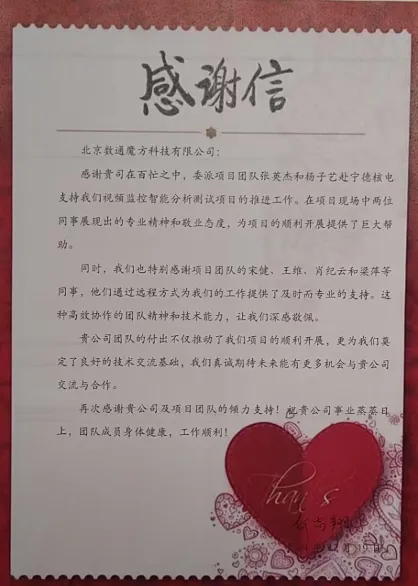 感谢信
北京数通魔方科技有限公司：
感谢贵司在百忙之中，委派项目团队张英杰和杨子艺赴宁德核电
支持我们视频监控智能分析测试项目的推进工作。在项目现场中两位
同事展现出的专业精神和敬业态度，为项目的顺利开展提供了巨大帮
助。
同时，我们也特别感谢项目团队的宋健、王维、肖纪云和梁萍等
同事，他们通过远程方式为我们的工作提供了及时而专业的支持。这
种高效协作的团队精神和技术能力，让我们深感敬佩。
贵公司团队的付出不仅推动了我们项目的顺利开展，更为我们奠
定了良好的技术交流基础，我们真诚期待未来能有更多机会与贵公司
交流与合作。
再次感谢贵公司及项目团队的倾力支持！祝贵公司事业蒸蒸日
上，团队成员身体健康，工作顺利！